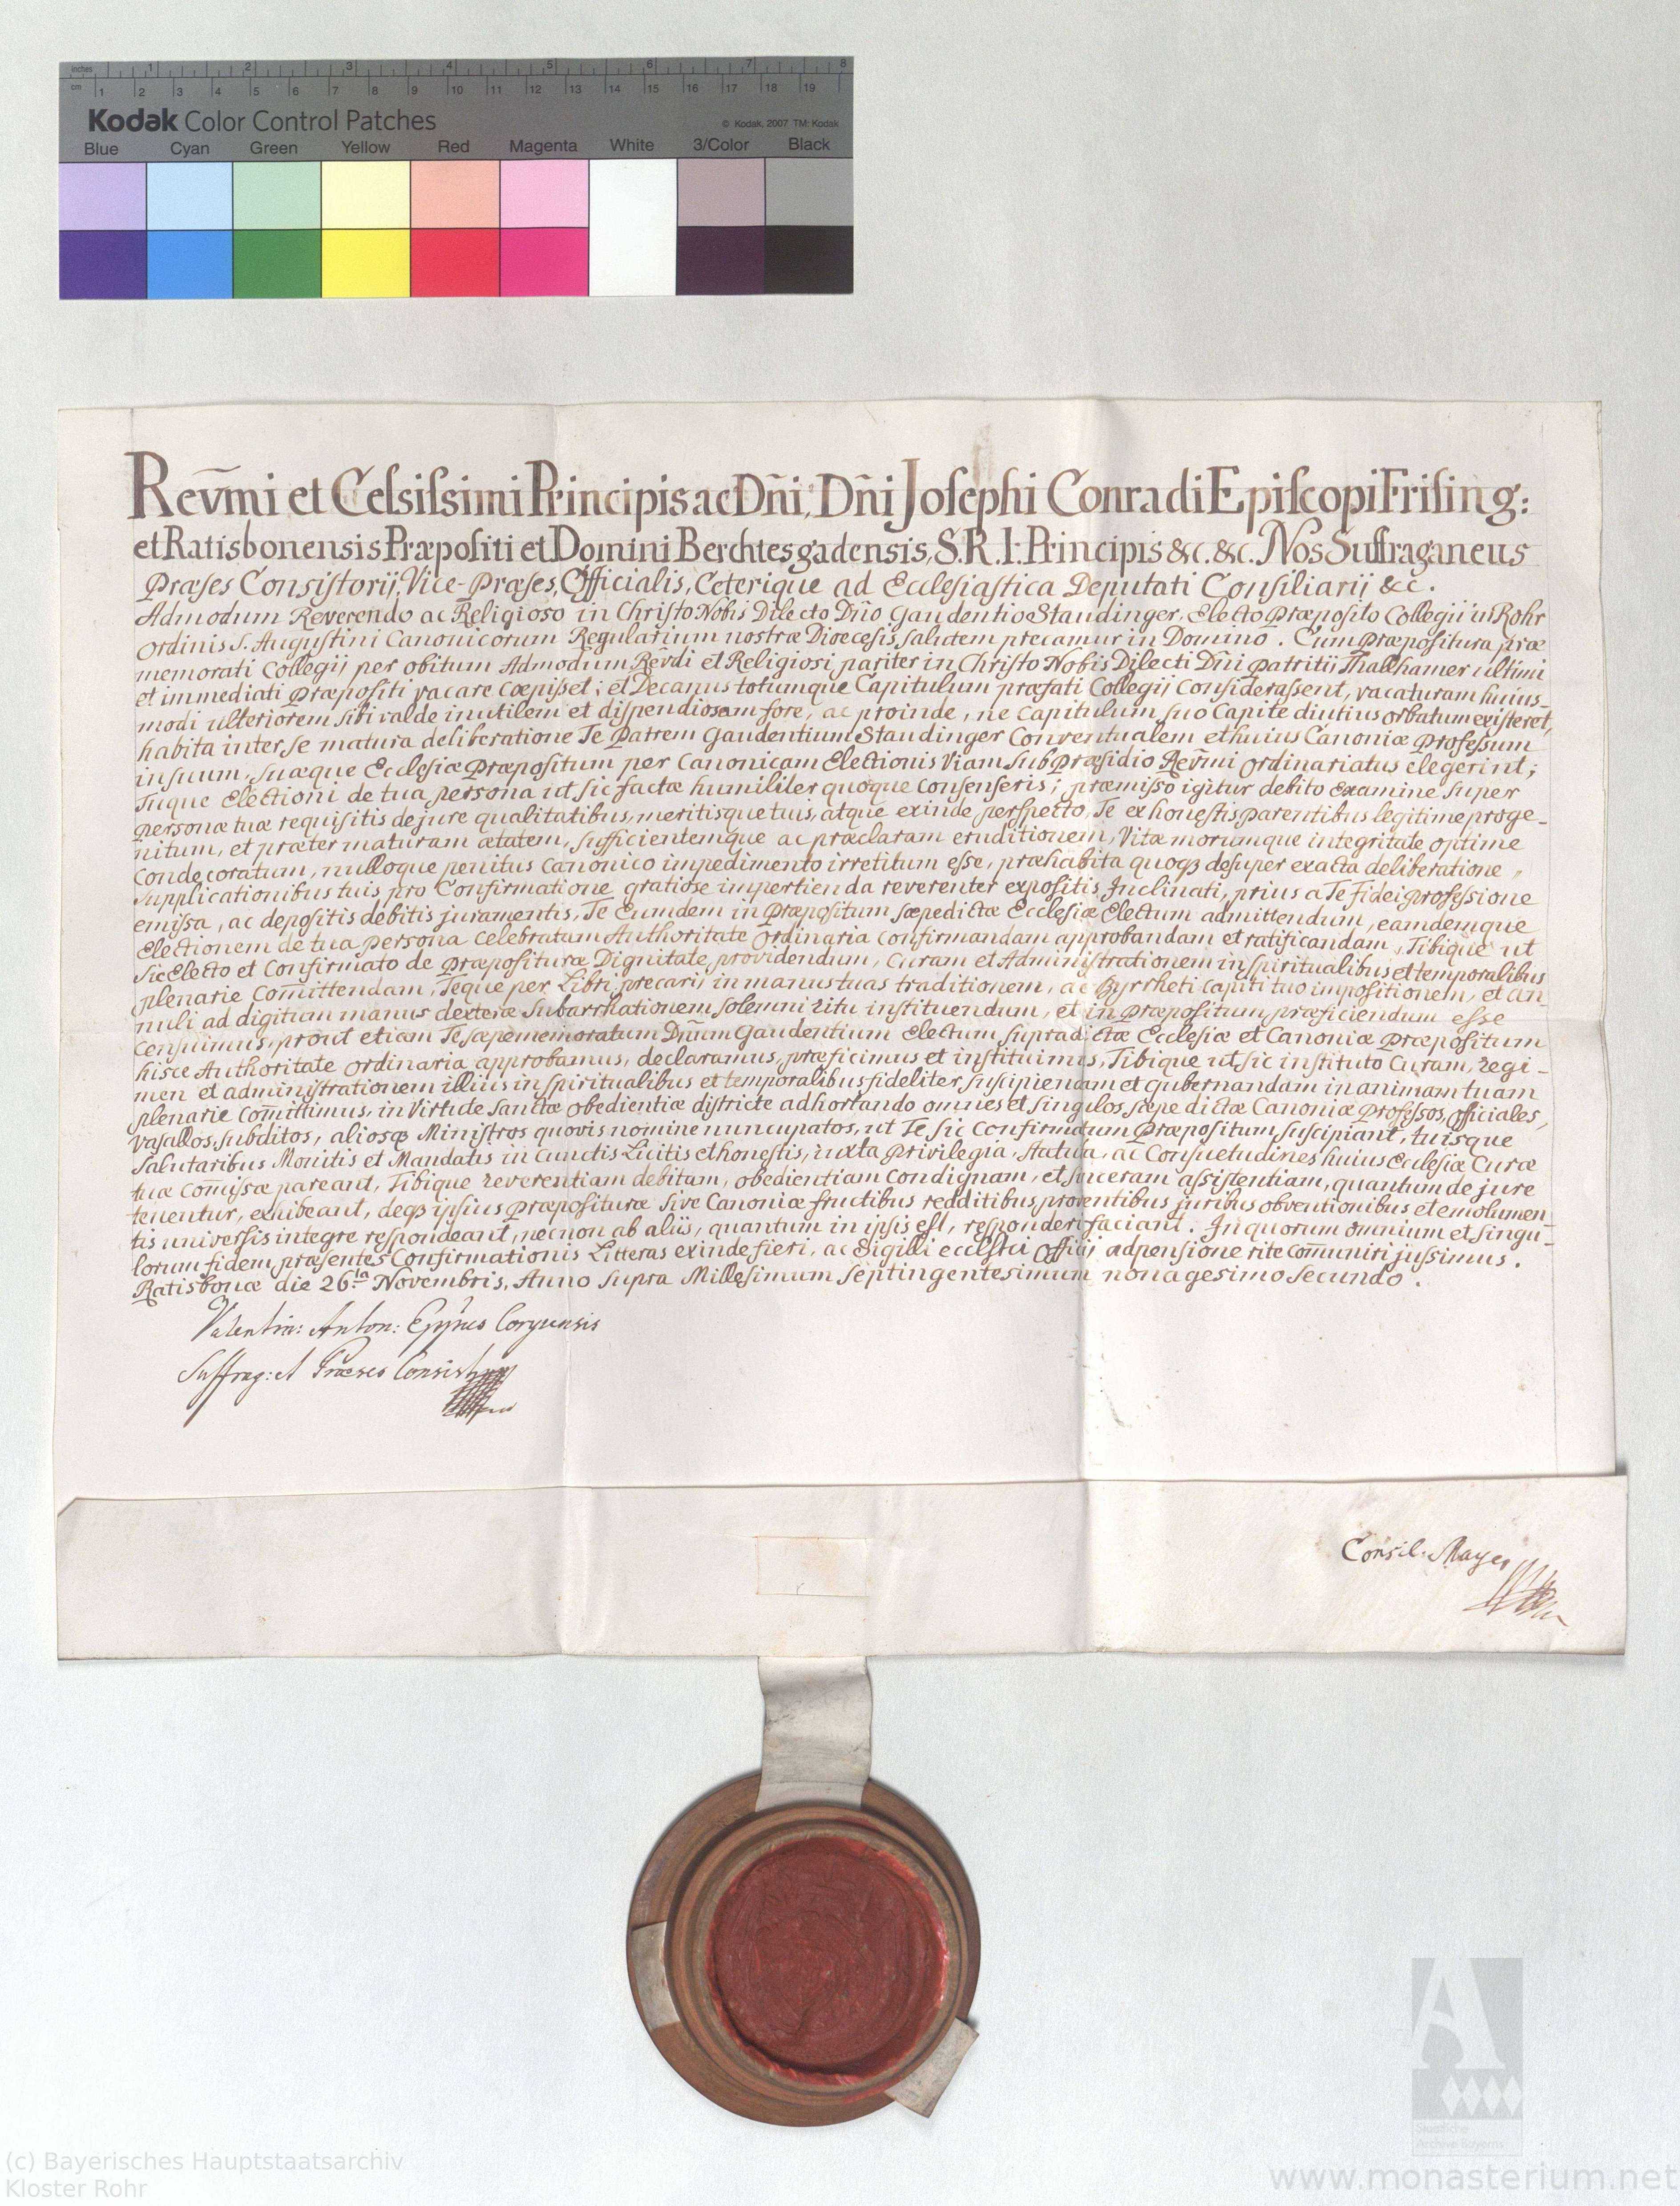 inches 1 2 3 4 5 6 7 8
cm 1 2 3 4 5 6 7 8 9 10 11 12 13 14 15 16 17 18 19
Kodak Color Control Patches © Kodak, 2007 TM: Kodak
Blue Cyan Green Yellow Red Magenta White 3/Color Black
Rev̄mi et Celsiſsimi Principis ac Dñi, Dñi Joſephi Conradi Epiſcopi Friſing:
et Ratisbonensis Præpoſiti et Domini Berchtesgadensis, S. R. I. Principis &c. &c. Nos Suffraganeus
Præses Conſiſtorij, Vice-Præses, Officialis, Ceterique ad Eccleſiaſtica Deputati Conſiliarij &c.
Admodum Reverendo ac Religioso in Chriſto Nobis Dilecto Dño Gaudentio Staudinger, Electo Præpoſito Collegij in Rohr
Ordinis S. Auguſtini Canonicorum Regularium nostræ Diœcesis, ſalutem precamur in Domino. Cum Præpoſitura præ
memorati Collegij per obitum Admodum Rev̄di et Religiosi pariter in Chriſto Nobis Dilecti Dñi Patritii Thallhamer ultimi
et immediati Præpoſiti vacare cœpiſset; et Decanus totumque Capitulum præfati Collegij Conſideraſsent, vacaturam huius-
modi ulteriorem ſibi valde inutilem et diſpendiosam fore, ac proinde, ne Capitulum ſuo Capite diutius orbatum exiſteret,
habita inter ſe matura deliberatione Te Patrem Gaudentium Staudinger Conventualem et huius Canoniæ Profeſsum
in ſuum, ſuæque Eccleſiæ Præpoſitum per Canonicam Electionis Viam Sub Præſidio Rev̄mi Ordinariatus elegerint;
Tuque Electioni de tua persona ut ſic factæ humiliter quoque conſenſeris; præmiſso igitur debito examine ſuper
personæ tuæ requiſitis de jure qualitatibus, meritisque tuis, atque exinde perſpecto, Te ex honeſtis parentibus legitime proge-
nitum, et præter maturam ætatem, ſufficientemque ac præclaram eruditionem, Vitæ morumque integritate optime
condecoratum, nulloque penitus canonico impedimento irretitum eſse, præhabita quoqȝ deſuper exacta deliberatione,
ſupplicationibus tuis pro Confirmatione gratiose impertienda reverenter expoſitis, Inclinati, prius a Te Fidei profeſsione
emiſsa, ac depoſitis debitis juramentis, Te Eumdem in Præpoſitum ſæpedictæ Eccleſiæ Electum admittendum, eamdemque
Electionem de tua persona celebratam Authoritate Ordinaria confirmandam approbandam et ratificandam, Tibique ut
ſic Electo et Confirmato de Præpoſituræ Dignitate providendum, Curam et Adminiſtrationem in ſpiritualibus et temporalibus
plenarie com̄ittendam, Teque per Libri precarij in manus tuas traditionem, ac Byrrheti capiti tuo impoſitionem, et an
nuli ad digitum manus dexteræ Subarrhationem ſolemni ritu inſtituendum, et in Præpoſitum præficiendum eſse
cenſuimus, prout etiam Te ſæpememoratum Dñum Gaudentium Electum ſupradictæ Eccleſiæ et Canoniæ Præpoſitum
hisce Authoritate Ordinaria approbamus, declaramus, præficimus et inſtituimus, Tibique ut ſic inſtituto Curam, regi-
men et adminiſtrationem illius in ſpiritualibus et temporalibus fideliter ſuſcipiendam et gubernandam in animam tuam
plenarie com̄ittimus, in Virtute Sanctæ obedientiæ diſtricte adhortando omnes et ſingulos ſæpe dictæ Canoniæ Profeſsos, Officiales,
Vaſallos, ſubditos, alioſqȝ Miniſtros quovis nomine nuncupatos, ut Te ſic confirmatum Præpoſitum ſuſcipiant, tuisque
ſalutaribus Monitis et Mandatis in cunctis Licitis et honeſtis, iuxta Privilegia, Statuta, ac Conſuetudines huius Eccleſiæ Curæ
tuæ com̄iſsæ pareant, Tibique reverentiam debitam, obedientiam condignam, et ſinceram aſsiſtentiam, quantum de jure
tenentur, exhibeant, deqȝ ipſius Præpoſituræ ſive Canoniæ fructibus redditibus proventibus juribus obventionibus et emolumen-
tis univerſis integre reſpondeant, necnon ab aliis, quantum in ipsis eſt, reſponderi faciant. In quorum omnium et ſingu-
lorum fidem præſentes Confirmationis Litteras exinde fieri, ac Sigilli eccleſtci Officij adpenſione rite com̄uniri juſsimus.
Ratisbonæ die 26ta Novembris, Anno ſupra Millesimum ſeptingentesimum nonagesimo ſecundo.
Valentin: Anton: Corycensis
Suffrag: et Præses Consistorij
Consil. Mayer
(c) Bayerisches Hauptstaatsarchiv
Kloster Rohr
Staatliche
Archive Bayerns
www.monasterium.net